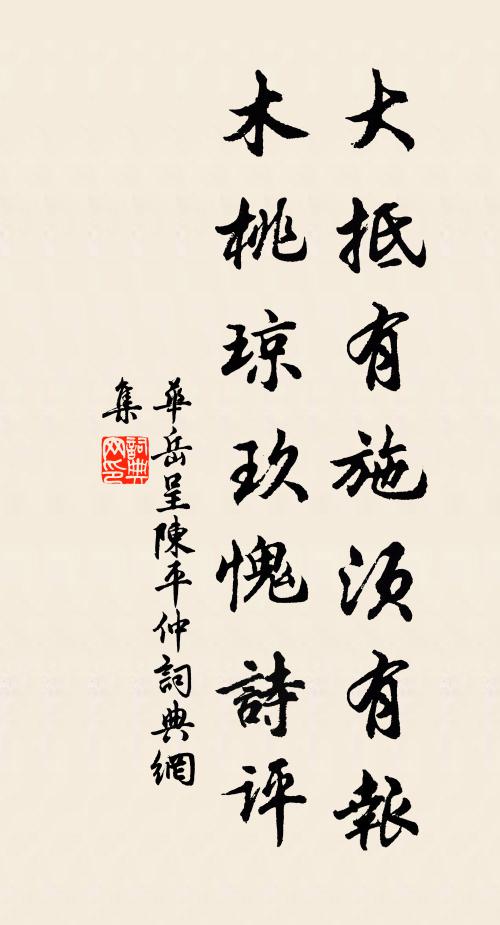 大抵有施須有報
木桃琼玖愧詩評
華岳呈陳平仲詞典網
集
詞典
网印